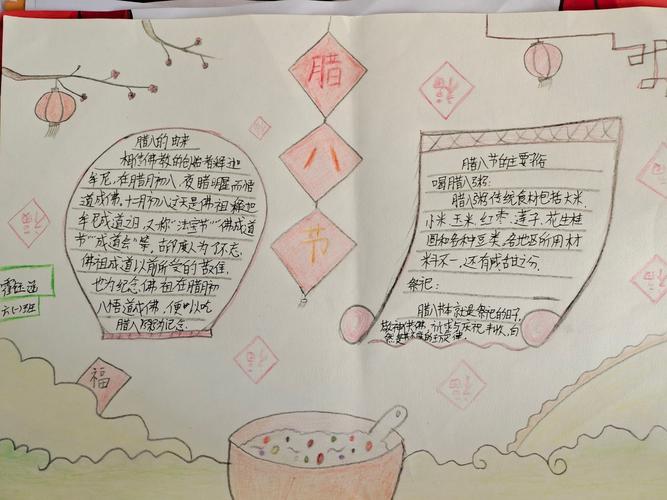 腊
八
节
腊八的由来
相传佛教的创始者释迦
牟尼,在腊月初八,夜睹明星而悟
道成佛,十二月初八这天是佛祖释迦
牟尼成道之日,又称"法宝节""佛成道
节""成道会"等,古印度人为了不忘
佛祖成道以前所受的苦难,
也为纪念佛祖在腊月初
八悟道成佛,便以吃
腊八粥为纪念.
腊八节的主要习俗
喝腊八粥:
腊八粥传统食材包括大米,
小米,玉米,红枣,莲子,花生,桂
圆和各种豆类,各地区所用材
料不一,还有咸甜之分.
祭祀:
腊八节本就是祭祀的日子,
六(一)班
福
福
福
福
福
福